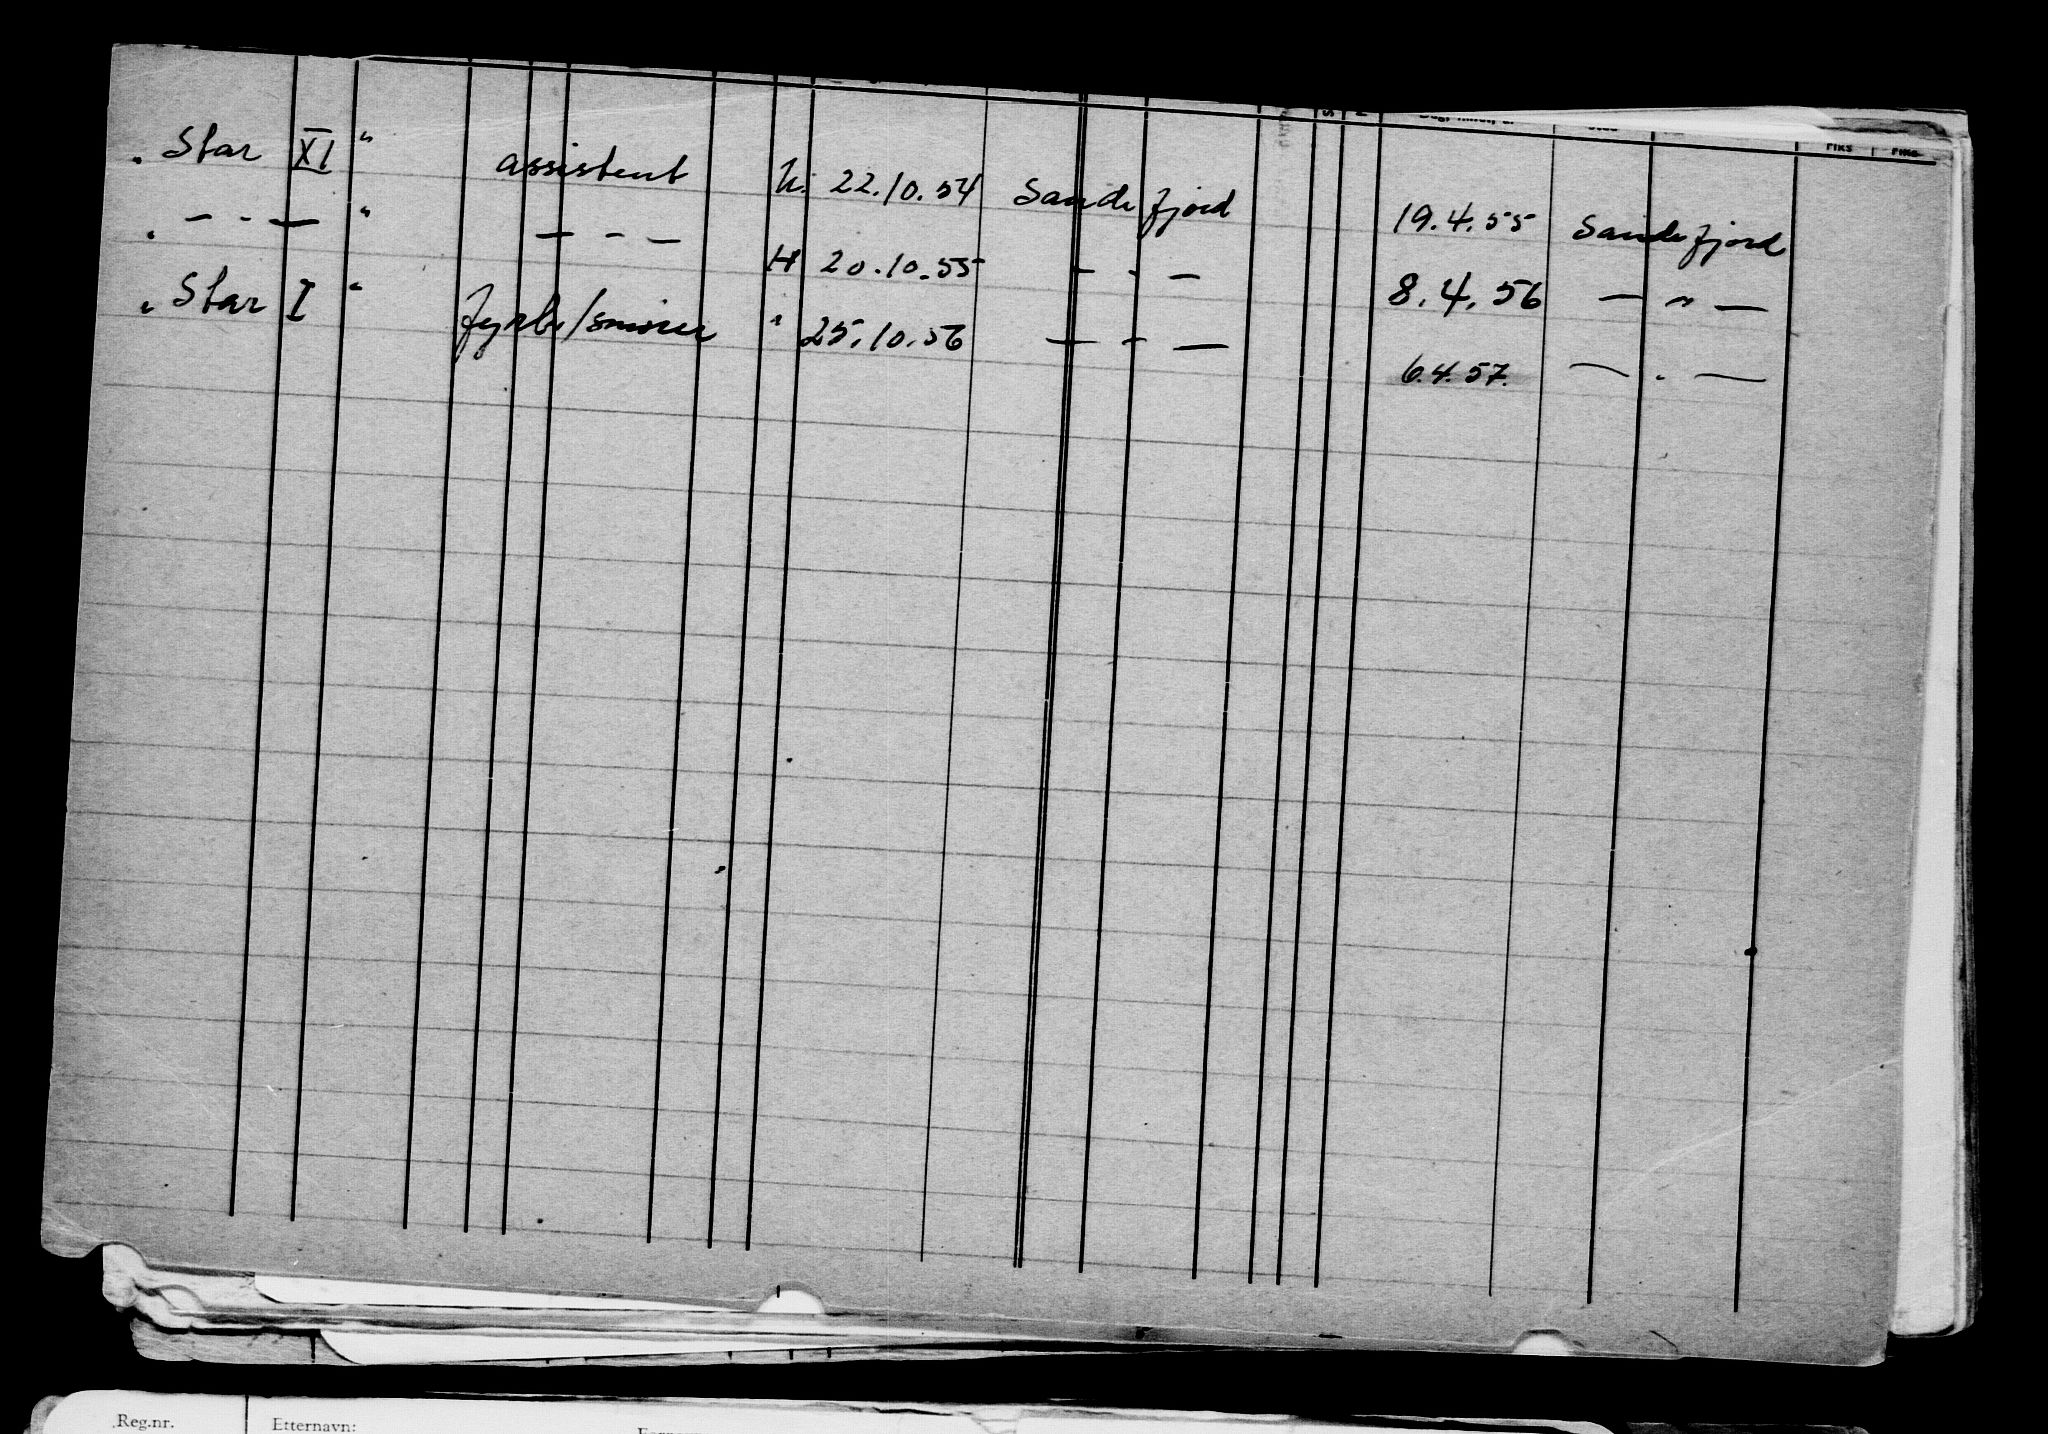 " Star XI " assistent U. 22.10.54 Sandefjord 19.4.55 Sandefjord
" — - — " — - — H 20.10.55 — - — 8.4.56 — " —
" Star I " fyrb/smører " 25.10.56 — " — 6.4.57. — " —
Reg.nr. Etternavn: